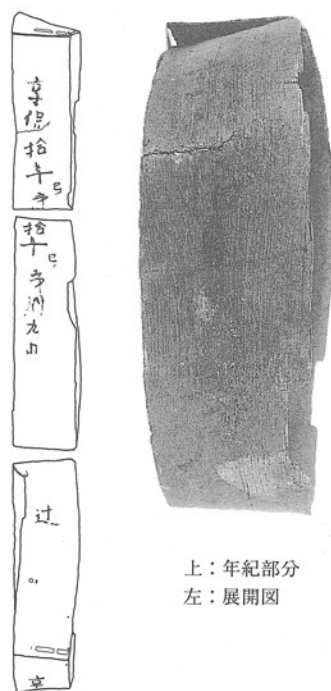 享保拾年
巳
拾年
巳
閏九月
辻
享
上：年紀部分
左：展開図